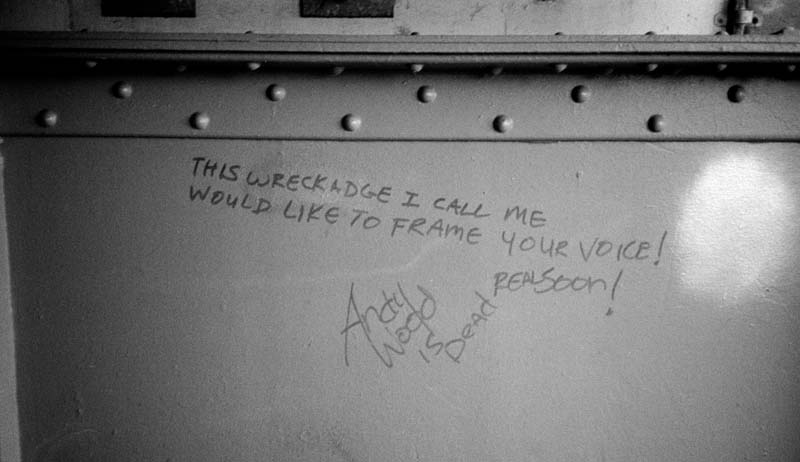 THIS WRECKADGE I CALL ME
WOULD LIKE TO FRAME YOUR VOICE!
REALSOON!
Andy
Wood
is
Dead